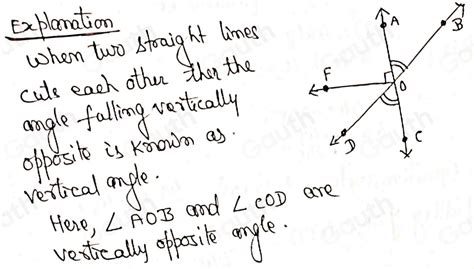 Explanation
When two straight lines
cuts each other then the
angle falling vertically
opposite is known as.
vertical angle.
Here, ∠AOB and ∠COD are
vertically opposite angle.
A
B
F
O
D
C